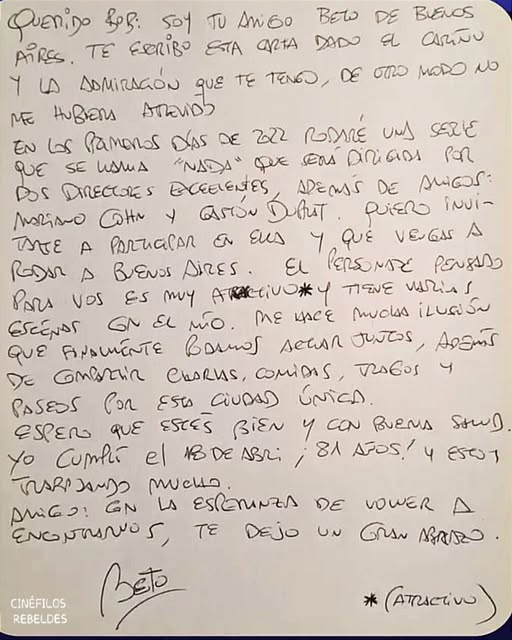 QUERIDO BOB: SOY TU AMIGO BETO DE BUENOS
AIRES. TE ESCRIBO ESTA CARTA DADO EL CARIÑO
Y LA ADMIRACIÓN QUE TE TENGO, DE OTRO MODO NO
ME HUBIERA ATREVIDO
EN LOS PRIMEROS DÍAS DE 2022 RODARÉ UNA SERIE
QUE SE LLAMA "NADA" QUE SERÁ DIRIGIDA POR
DOS DIRECTORES EXCELENTES, ADEMÁS DE AMIGOS:
MARIANO COHN Y GASTÓN DUPRAT. QUIERO INVI-
TARTE A PARTICIPAR EN ELLA Y QUE VENGAS A
RODAR A BUENOS AIRES. EL PERSONAJE PENSADO
PARA VOS ES MUY ATRACTIVO* Y TIENE VARIAS
ESCENAS CON EL MÍO. ME HACE MUCHA ILUSIÓN
QUE FINALMENTE PODAMOS ACTUAR JUNTOS, ADEMÁS
DE COMPARTIR CHARLAS, COMIDAS, TRAGOS Y
PASEOS POR ESTA CIUDAD ÚNICA.
ESPERO QUE ESTÉS BIEN Y CON BUENA SALUD.
YO CUMPLÍ el 18 DE ABRIL ¡81 AÑOS! Y ESTOY
TRABAJANDO MUCHO.
AMIGO: EN LA ESPERANZA DE VOLVER A
ENCONTRARNOS, TE DEJO UN GRAN ABRAZO.
BETO
*(ATRACTIVO)
CINÉFILOS
REBELDES